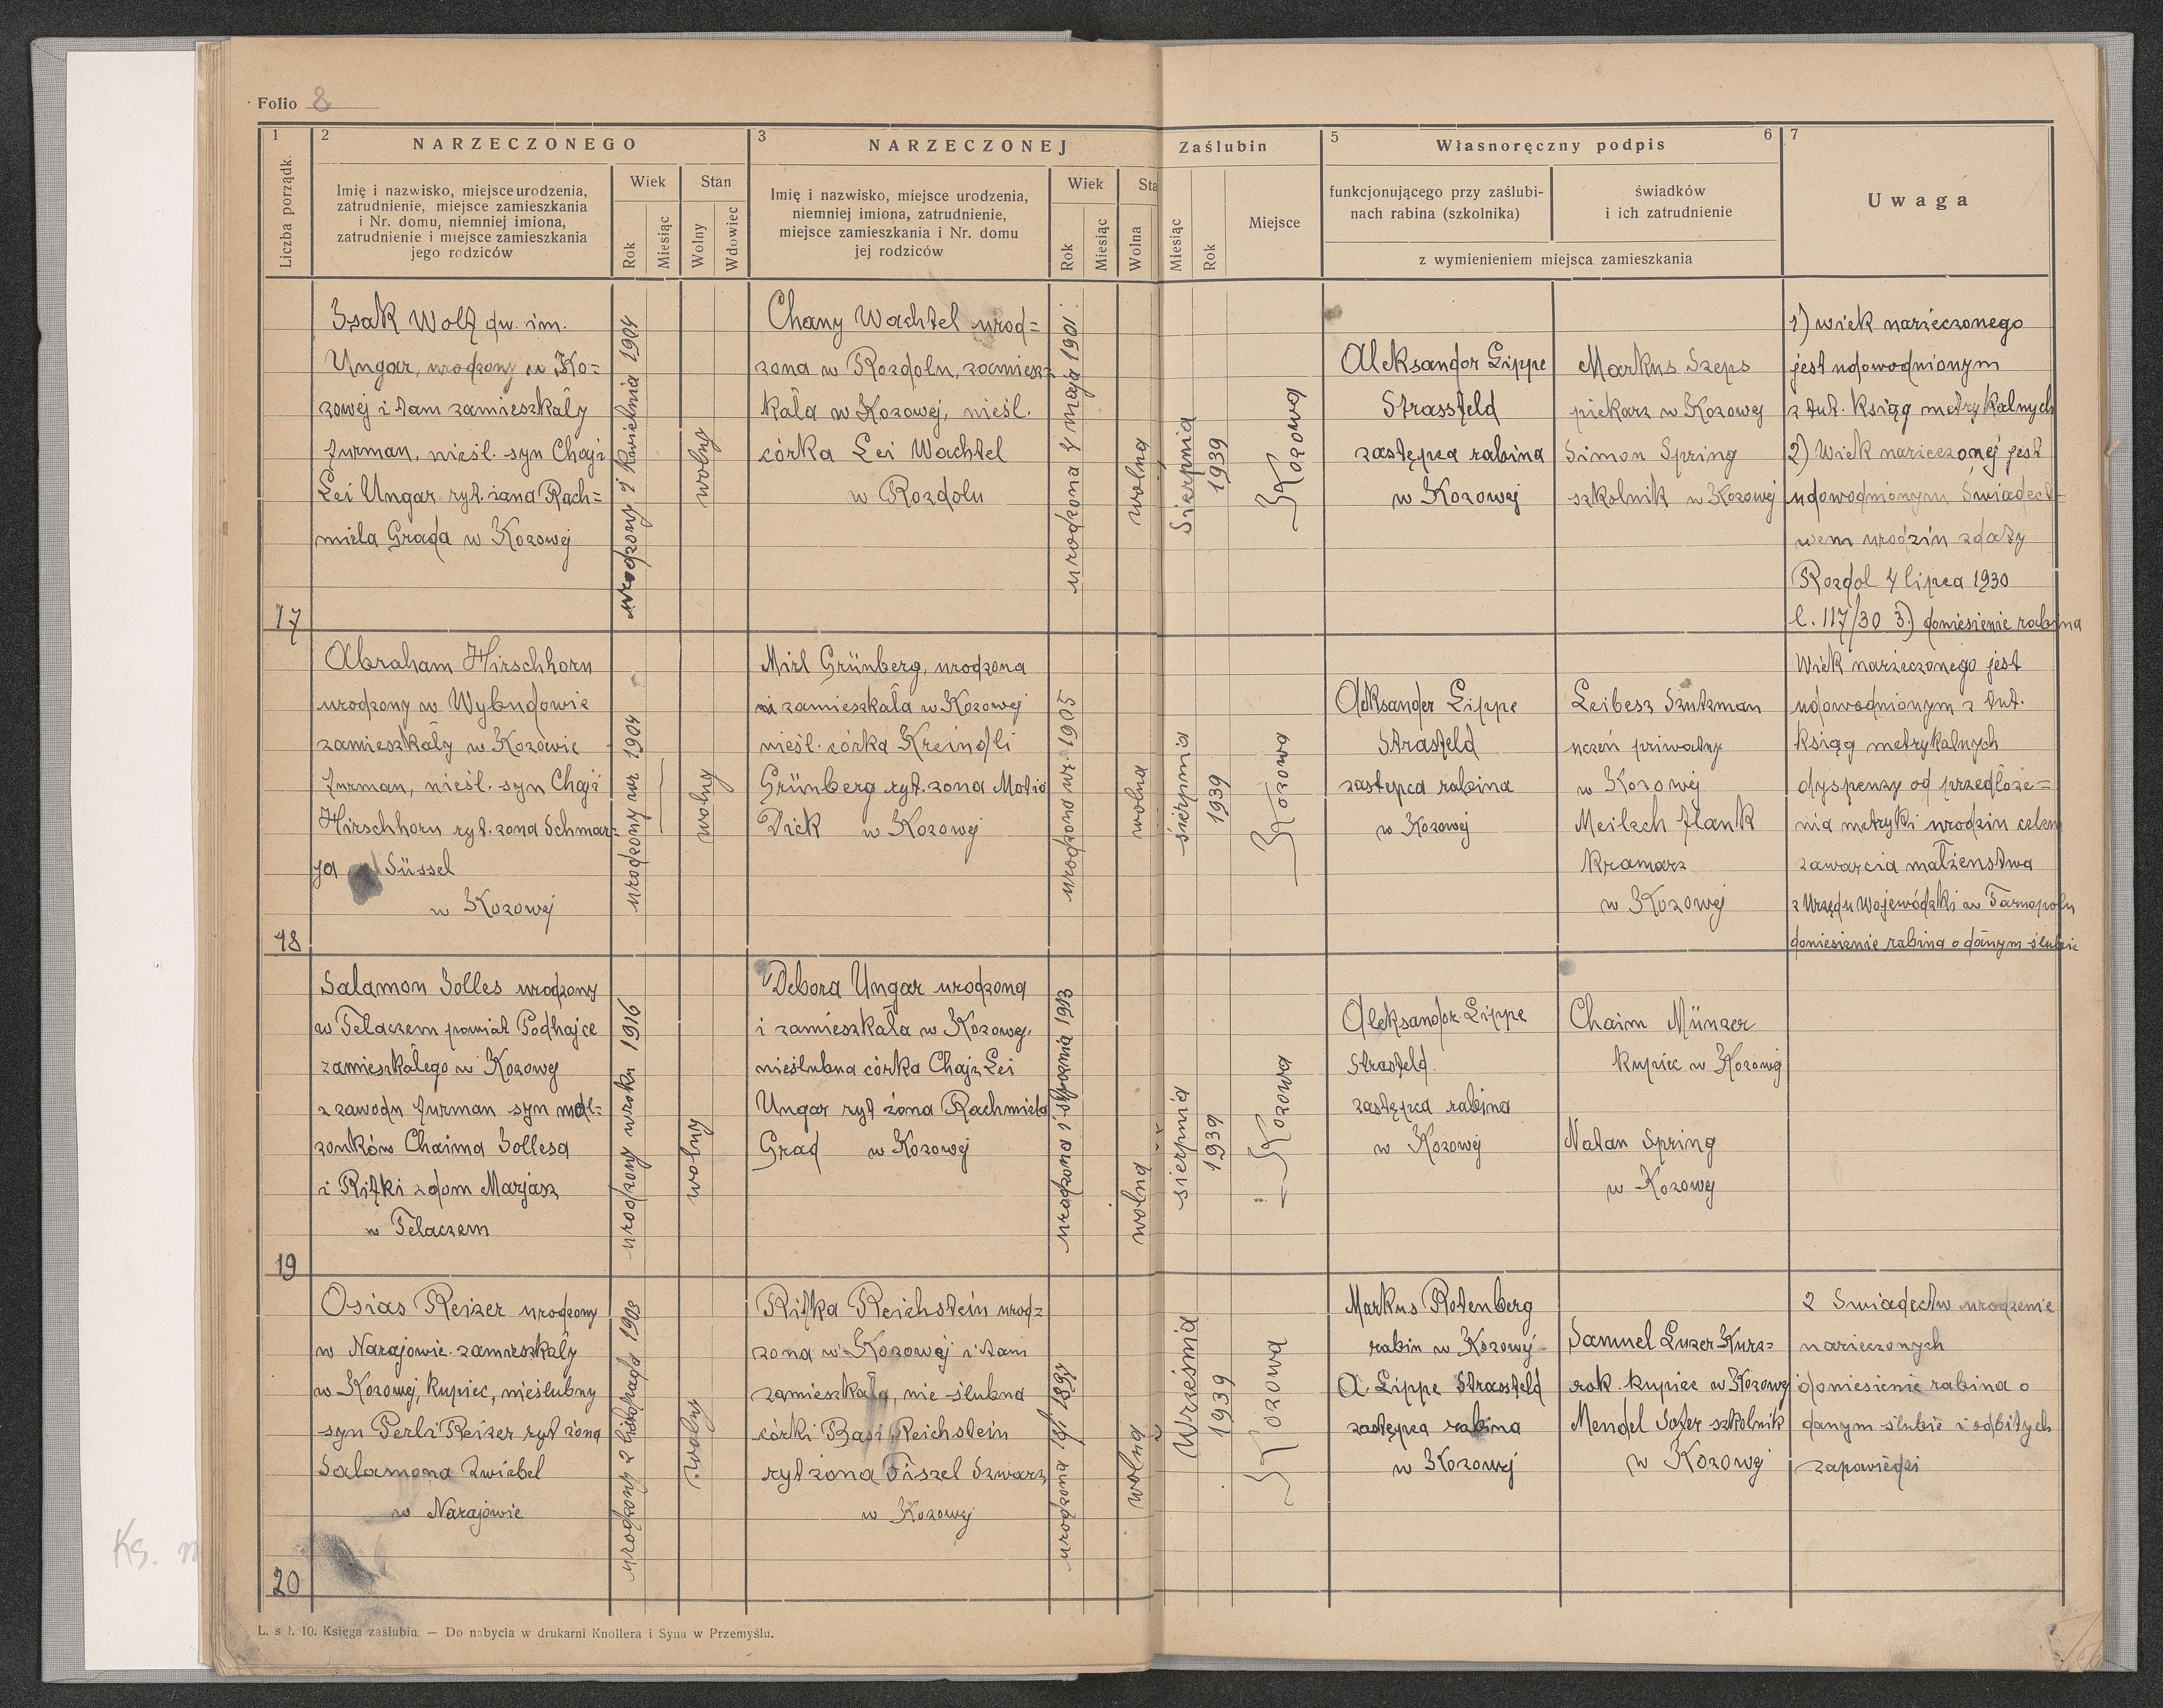 Folio 8
1
Liczba porządk.
2
NARZECZONEGO
Imię i nazwisko, miejsce urodzenia,
zatrudnienie, miejsce zamieszkania
i Nr. domu, niemniej imiona,
zatrudnienie i miejsce zamieszkania
jego rodziców
Wiek
Rok
Miesiąc
Stan
Wolny
Wdowiec
3
NARZECZONEJ
Imię i nazwisko, miejsce urodzenia,
niemniej imiona, zatrudnienie,
miejsce zamieszkania i Nr. domu
jej rodziców
Wiek
Rok
Miesiąc
Sta
Wolna
Zaślubin
Miesiąc
Rok
Miejsce
5
Własnoręczny podpis
6
funkcjonującego przy zaślubi-
nach rabina (szkolnika)
świadków
i ich zatrudnienie
z wymienieniem miejsca zamieszkania
7
Uwaga
17
Izak Wolf dw. im.
Ungar, urodzony w Ko=
zowej i tam zamieszkały
furman, nieśl. syn Chaji
Lei Ungar ryt. żona Rach=
miela Grada w Kozowej
urodzony 2 kwietnia 1904
wolny
Chany Wachtel urod=
zona w Rozdolu, zamiesz=
kała w Kozowej, nieśl.
córka Lei Wachtel
w Rozdolu
urodzona 4 maja 1901
wolna
Sierpnia
1939
Kozowa
Aleksander Lippe
Strassfeld
zastępca rabina
w Kozowej
Markus Szeps
piekarz w Kozowej
Simon Spring
szkolnik w Kozowej
1) wiek narzeczonego
jest udowodnionym
z tut. ksiąg metrykalnych
2) Wiek narzeczonej jest
udowodnionym Świadect=
wem urodzin z daty
Rozdol 4 lipca 1930
l. 117/30 3) doniesienie rabina
18
Abraham Hirschhorn
urodzony w Wybudowie
zamieszkały w Kozowie
furman, nieśl. syn Chaji
Hirschhorn ryt. zona Schmar=
ja Süssel
w Kozowej
urodzony w r 1904
wolny
Mirl Grünberg, urodzona
i zamieszkała w Kozowej
nieśl. córka Kreindli
Grünberg ryt. zona Motio
Dick w Kozowej
urodzona w r. 1905
wolna
sierpnia
1939
Kozowa
Aleksander Lippe
Strasfeld
zastepca rabina
w Kozowej
Leibesz Szutzman
uczeń priwatny
w Kozowej
Meilech Flank
kramarz
w Kozowej
Wiek narzeczonego jest
udowodnionym z tut.
ksiąg metrykalnych
dyspenzy od przedłoże=
nia metryki urodzin celem
zawarcia małżenstwa
z Urzędu Wojewódzki w Tarnopolu
doniesienie rabina o danym slubie
19
Salamon Solles urodzony
w Telaczem powiat Podhajce
zamieszkałego w Kozowej
z zawodu furman syn mał=
zonków Chaima Sollesa
i Rifki z dom Marjasz
w Telaczem
urodzony w roku 1916
wolny
Debora Ungar urodzona
i zamieszkała w Kozowej,
nieślubna córka Chaji Lei
Ungar ryt żona Rachmiela
Grad w Kozowej
urodzona 1 stycznia 1913
wolna
sierpnia
1939
Kozowa
Aleksander Lippe
Strasfeld
zastępca rabina
w Kozowej
Chaim Münzer
kupiec w Kozowej
Natan Spring
w Kozowej
20
Osias Reizer urodzony
w Narajowie zamieszkały
w Kozowej, kupiec, nieślubny
syn Perli Reizer ryt żona
Salamona Zwiebel
w Narajowie
urodzony 2 listopada 1908
wolny
Rifka Reichstein urod=
zona w Kozowej i tam
zamieszkała, nie ślubna
córki Basi Reichstein
ryt zona Fiszel Szwarz
w Kozowej
wolna
Września
1939
Kozowa
Markus Rotenberg
rabin w Kozowej
A. Lippe Strasfeld
zastępca rabina
w Kozowej
Samuel Luzer Kurz=
rok. kupiec w Kozowej
Mendel Sofer szkolnik
w Kozowej
2 Swiadectw urodzenie
narzeczonych
doniesienie rabina o
danym slubie i odbitych
zapowiedzi
L. s t. 10. Księga zaślubin. — Do nabycia w drukarni Knollera i Syna w Przemyślu.
Ks.